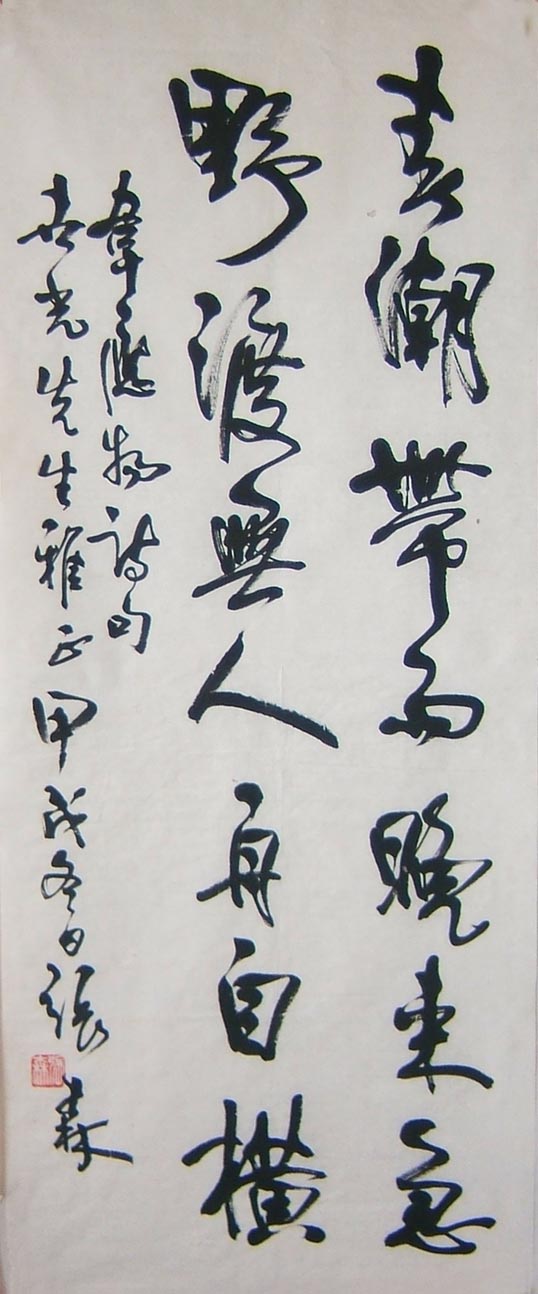 春潮帶雨晚來急
野渡無人舟自橫
韋應物詩句
光先生雅正甲戌冬日張森